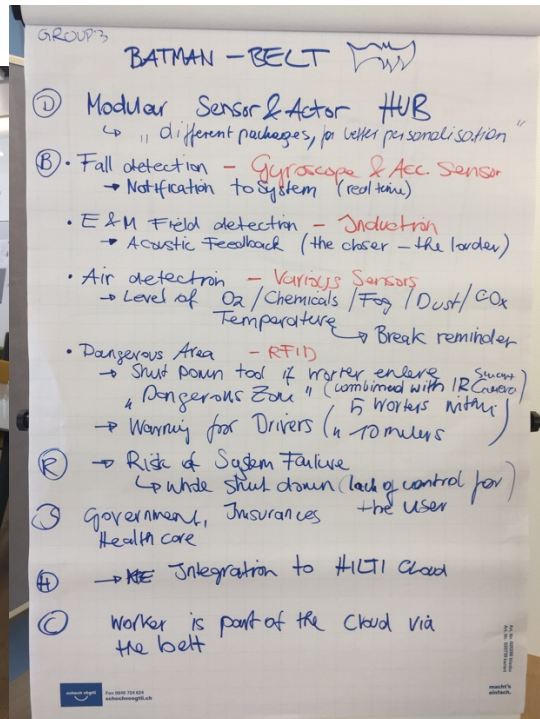 GROUP 3
BATMAN – BELT
D Modular Sensor & Actor HUB
↳ „ different packages, for better personalisation "
B • Fall detection – Gyroscope & Acc. Sensor
→ Notification to System (real time)
• E & M Field detection – Induction
→ Acoustic Feedback (the closer – the louder)
• Air detection – Various Sensors
→ Level of O2 / Chemicals / Fog / Dust / COx
Temperature
↳ Break reminder
• Dangerous Area – RFID
→ Shut down tool if worker enters
„ Dangerous Zone " (combined with IR Camera)
→ Warning for Drivers („ 5 workers within
10 meters
R → Risk of System Failure
↳ whole shut down (lack of control for
the user)
S Government, Insurances
Health care
H → Integration to HILTI Cloud
C Worker is part of the Cloud via
the belt
schoch vögtli
Fon 0848 724 624
schochvoegtli.ch
macht's
einfach.